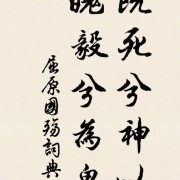 既死兮神以
魄毅兮為鬼
屈原國殤詞典